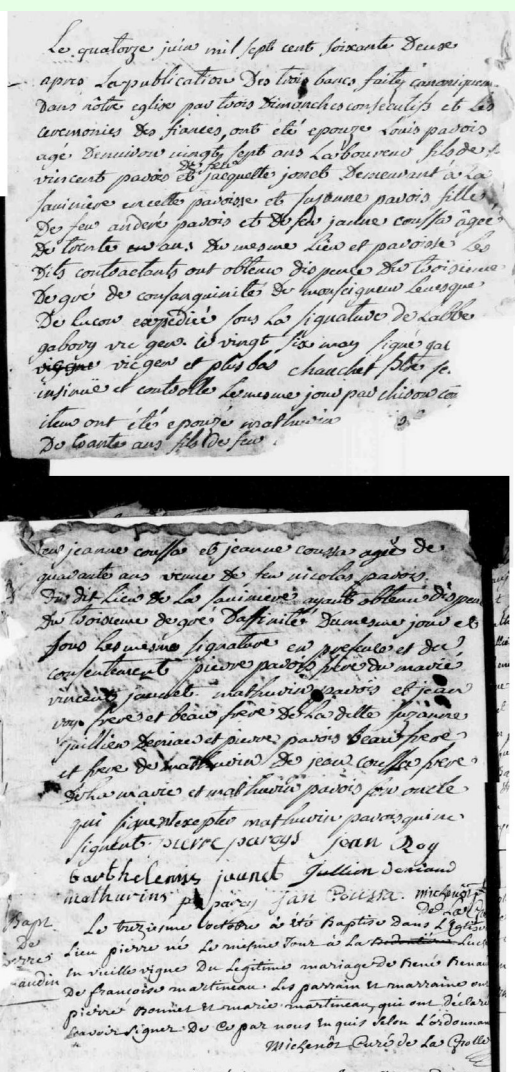 Le quatorze juin mil sept cent soixante Deux
apres La publication Des trois bancs faitte canoniquem
Dans nôtre eglise par trois Dimanches consecutifs et Les
ceremonies Des fiancés, ont eté epouzé Louis pavois
agé Denviron vingt sept ans Laboureur fils de f
vincent pavois et de feue jacquette jonet Demeurant à La
savinière en cette paroisse et suzanne pavois fille
De feu anderé pavois et De feu janne coussa âgée
De trente ans Du mesme Lieu et paroisse Les
Dits contractants ont obtenu dispence Du troisieme
Degré de consanguinité De monseigneur Levesque
De Lucon expédiée sous La signature De Labbe
gabory vic gen. ce vingt six may signé gab
vic gen et plus bas chauchet
insinué et controllé Le mesme jour par chison con
item ont étés epouzé mathurin
De trante ans fils De feu
feu jeanne coussa et jeanne coussa agée de
quarante ans veuve De feu nicolas pavois
Du dit Lieu De La savinière ayant obtenu dispen
Du troisieme Degré D'affinité Du mesme jour et
sous Les mesme signature en presence et du
consentement pierre pavois frere du marié
vincent jaunet mathurin pavois et jean
roy frere et beau frère De La ditte suzanne
jullien Deniau et pierre pavois beau frere
et frere De mathurin De jean coussa frere
De La mariée et mathurin pavois son oncle
qui signent excepté mathurin pavois qui ne
signent pierre paroys jean Roy
barthelemy jaunet Jullien deniaud
mathurins p paroy jan Coussa. Michenôt
De La
Bapt.
De
Pierre
audin
Le treziesme octobre à été Baptisé Dans L'Eglise
Lieu pierre né Le mesme Jour à La
En vieille vigne Du Legitime mariage De René Renau
De francoise martineau Les parrain et marraine on
pierre Bonnet et marie martineau, qui ont déclaré
scavoir signer De ce par nous Enquis selon L'ordonnan
Michenôt Curé de La Grolle